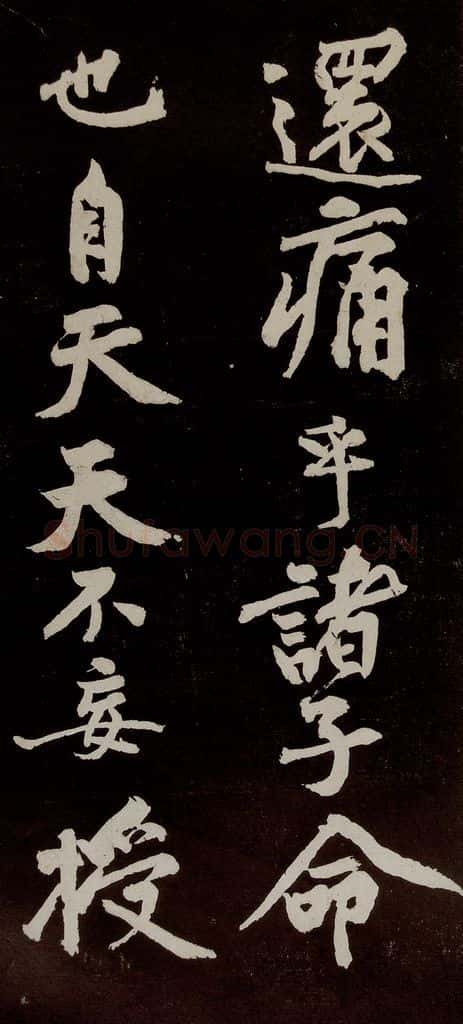 還痛乎諸子命
也自天天不妄授
Shufawang.CN